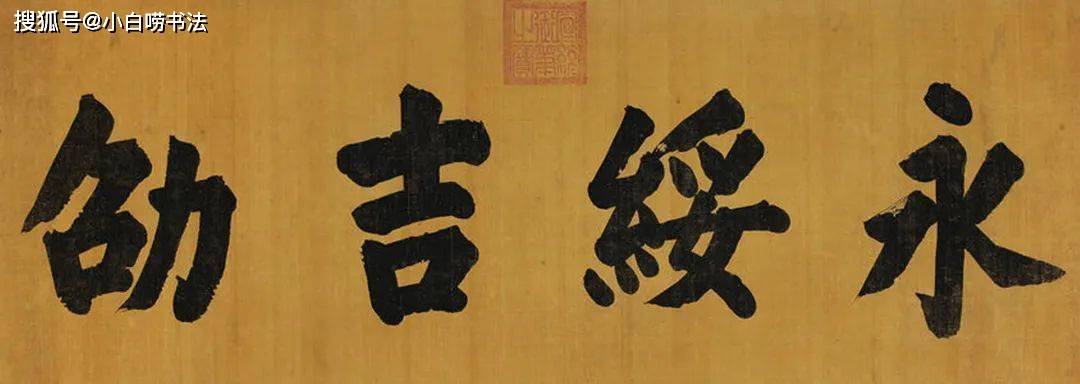 搜狐号@小白唠书法
永綏吉劭